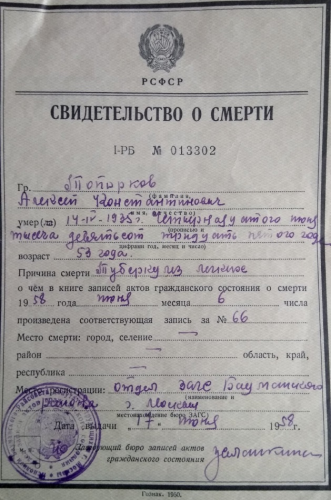 РСФСР
СВИДЕТЕЛЬСТВО О СМЕРТИ
I-РБ № 013302
Гр. Топорков
(фамилия,
Алексей Константинович
имя, отчество)
умер(ла) 14-IV-1935г. Четырнадцатого
(прописью и
тысяча девятьсот тридцать пятого года
цифрами год, месяц и число)
возраст 53 года.
Причина смерти Туберкулез легкое
о чём в книге записей актов гражданского состояния о смерти
1958 года июня месяца 6 числа
произведена соответствующая запись за № 66
Место смерти: город, селение —
район — область, край,
республика —
Место регистрации: отдел загс Бауманского
района г. Москвы
местонахождение бюро ЗАГС)
Дата выдачи „17" июня 1958г.
Заведующий бюро записей актов
гражданского состояния
Гознак. 1950.